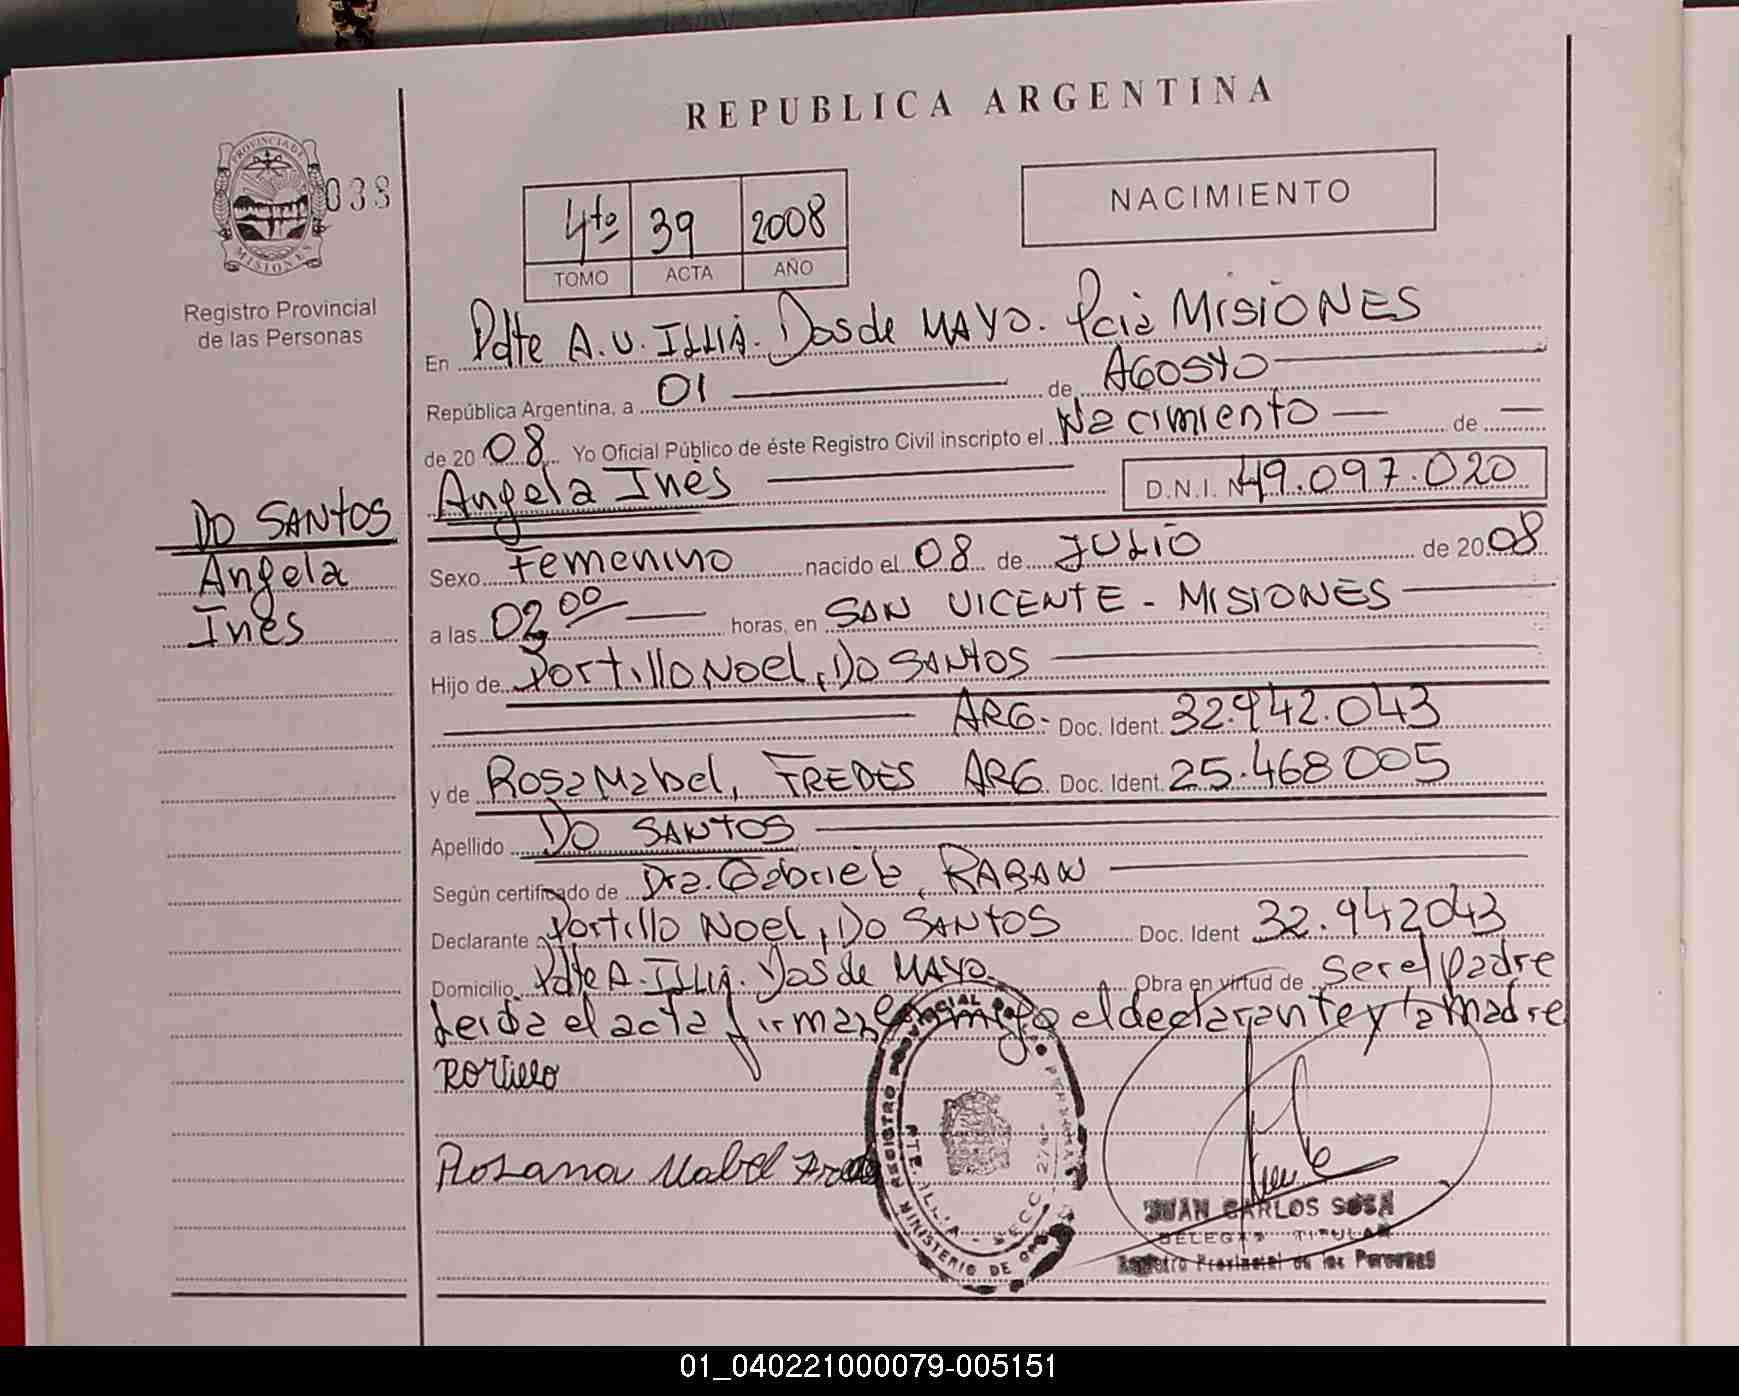 REPUBLICA ARGENTINA
PROVINCIA DE
MISIONES
038
Registro Provincial
de las Personas
4to 39 2008
TOMO ACTA AÑO
NACIMIENTO
En Pdte A.U. ILLIA. Dos de MAYO. Pcia MISIONES
República Argentina, a 01 de AGOSTO
de 2008 Yo Oficial Público de éste Registro Civil inscripto el Nacimiento — de —
Angela Inés D.N.I. Nº 49.097.020
DO SANTOS
Angela
Inés
Sexo Femenino nacido el 08 de JULIO de 2008
a las 02,00 horas, en SAN VICENTE - MISIONES
Hijo de Portillo Noel, DO SANTOS
ARG. Doc. Ident. 32.942.043
y de Rosa Mabel, FREDES ARG. Doc. Ident. 25.468005
Apellido DO SANTOS
Según certificado de Dra. Gabriela, RABAN
Declarante Portillo Noel, DO SANTOS Doc. Ident 32.942043
Domicilio Pdte A. ILLIA. Dos de MAYO. Obra en virtud de ser el padre
Leida el acta firman conmigo el declarante y la madre
Portillo
Rosana Mabel
REGISTRO PROVINCIAL DE
PTE. ILLIA - SECC
MINISTERIO DE
JUAN CARLOS SOSA
TITULAR
Registro Provincial de las Personas
01_040221000079-005151